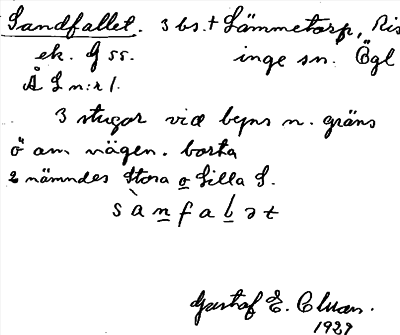 Sandfallet. 3 bs. t Lämmetorp, Ris
ek. G ss. inge sn. Ögl
Å L n:r 1.
3 stugor vid byns n. gräns
ö am vägen. borta
2 nämndes Stora o Lilla S.
sànfabət
Gustaf E. Cluan.
1929